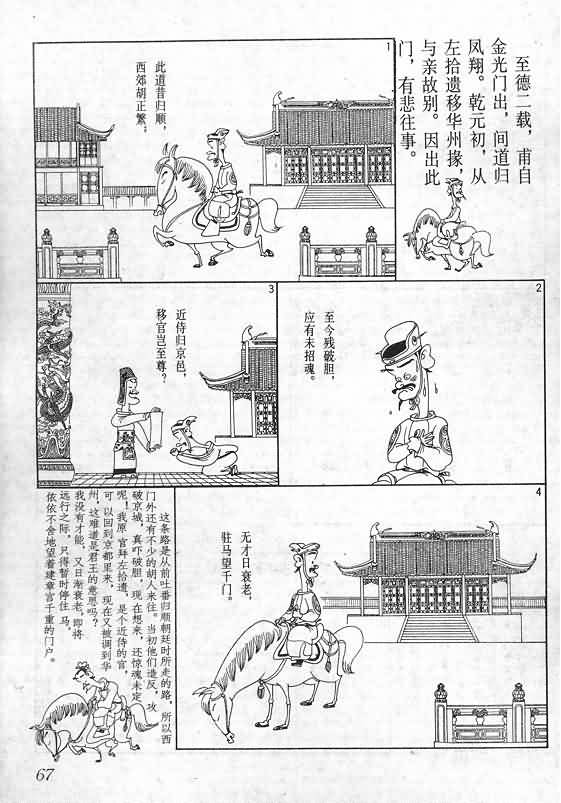 至德二载，甫自
金光门出，间道归
凤翔。乾元初，从
左拾遗移华州掾，
与亲故别。因出此
门，有悲往事。
1
此道昔归顺，
西郊胡正繁。
2
至今残破胆，
应有未招魂。
3
近侍归京邑，
移官岂至尊？
4
无才日衰老，
驻马望千门。
这条路是从前吐番归顺朝廷时所走的路，所以西
门外还有不少的胡人来往。当初他们造反，攻
破京城，真吓破胆，现在想来，还惊魂未定
呢！我原官拜左拾遗，是个近侍的官，
可以回到京都里来，现在又被调到华
州，这难道是君王的意思吗？
我没有才能，又日渐衰老。即将
远行之际，只得暂时停住马，
依依不舍地望着建章宫千重的门户。
67